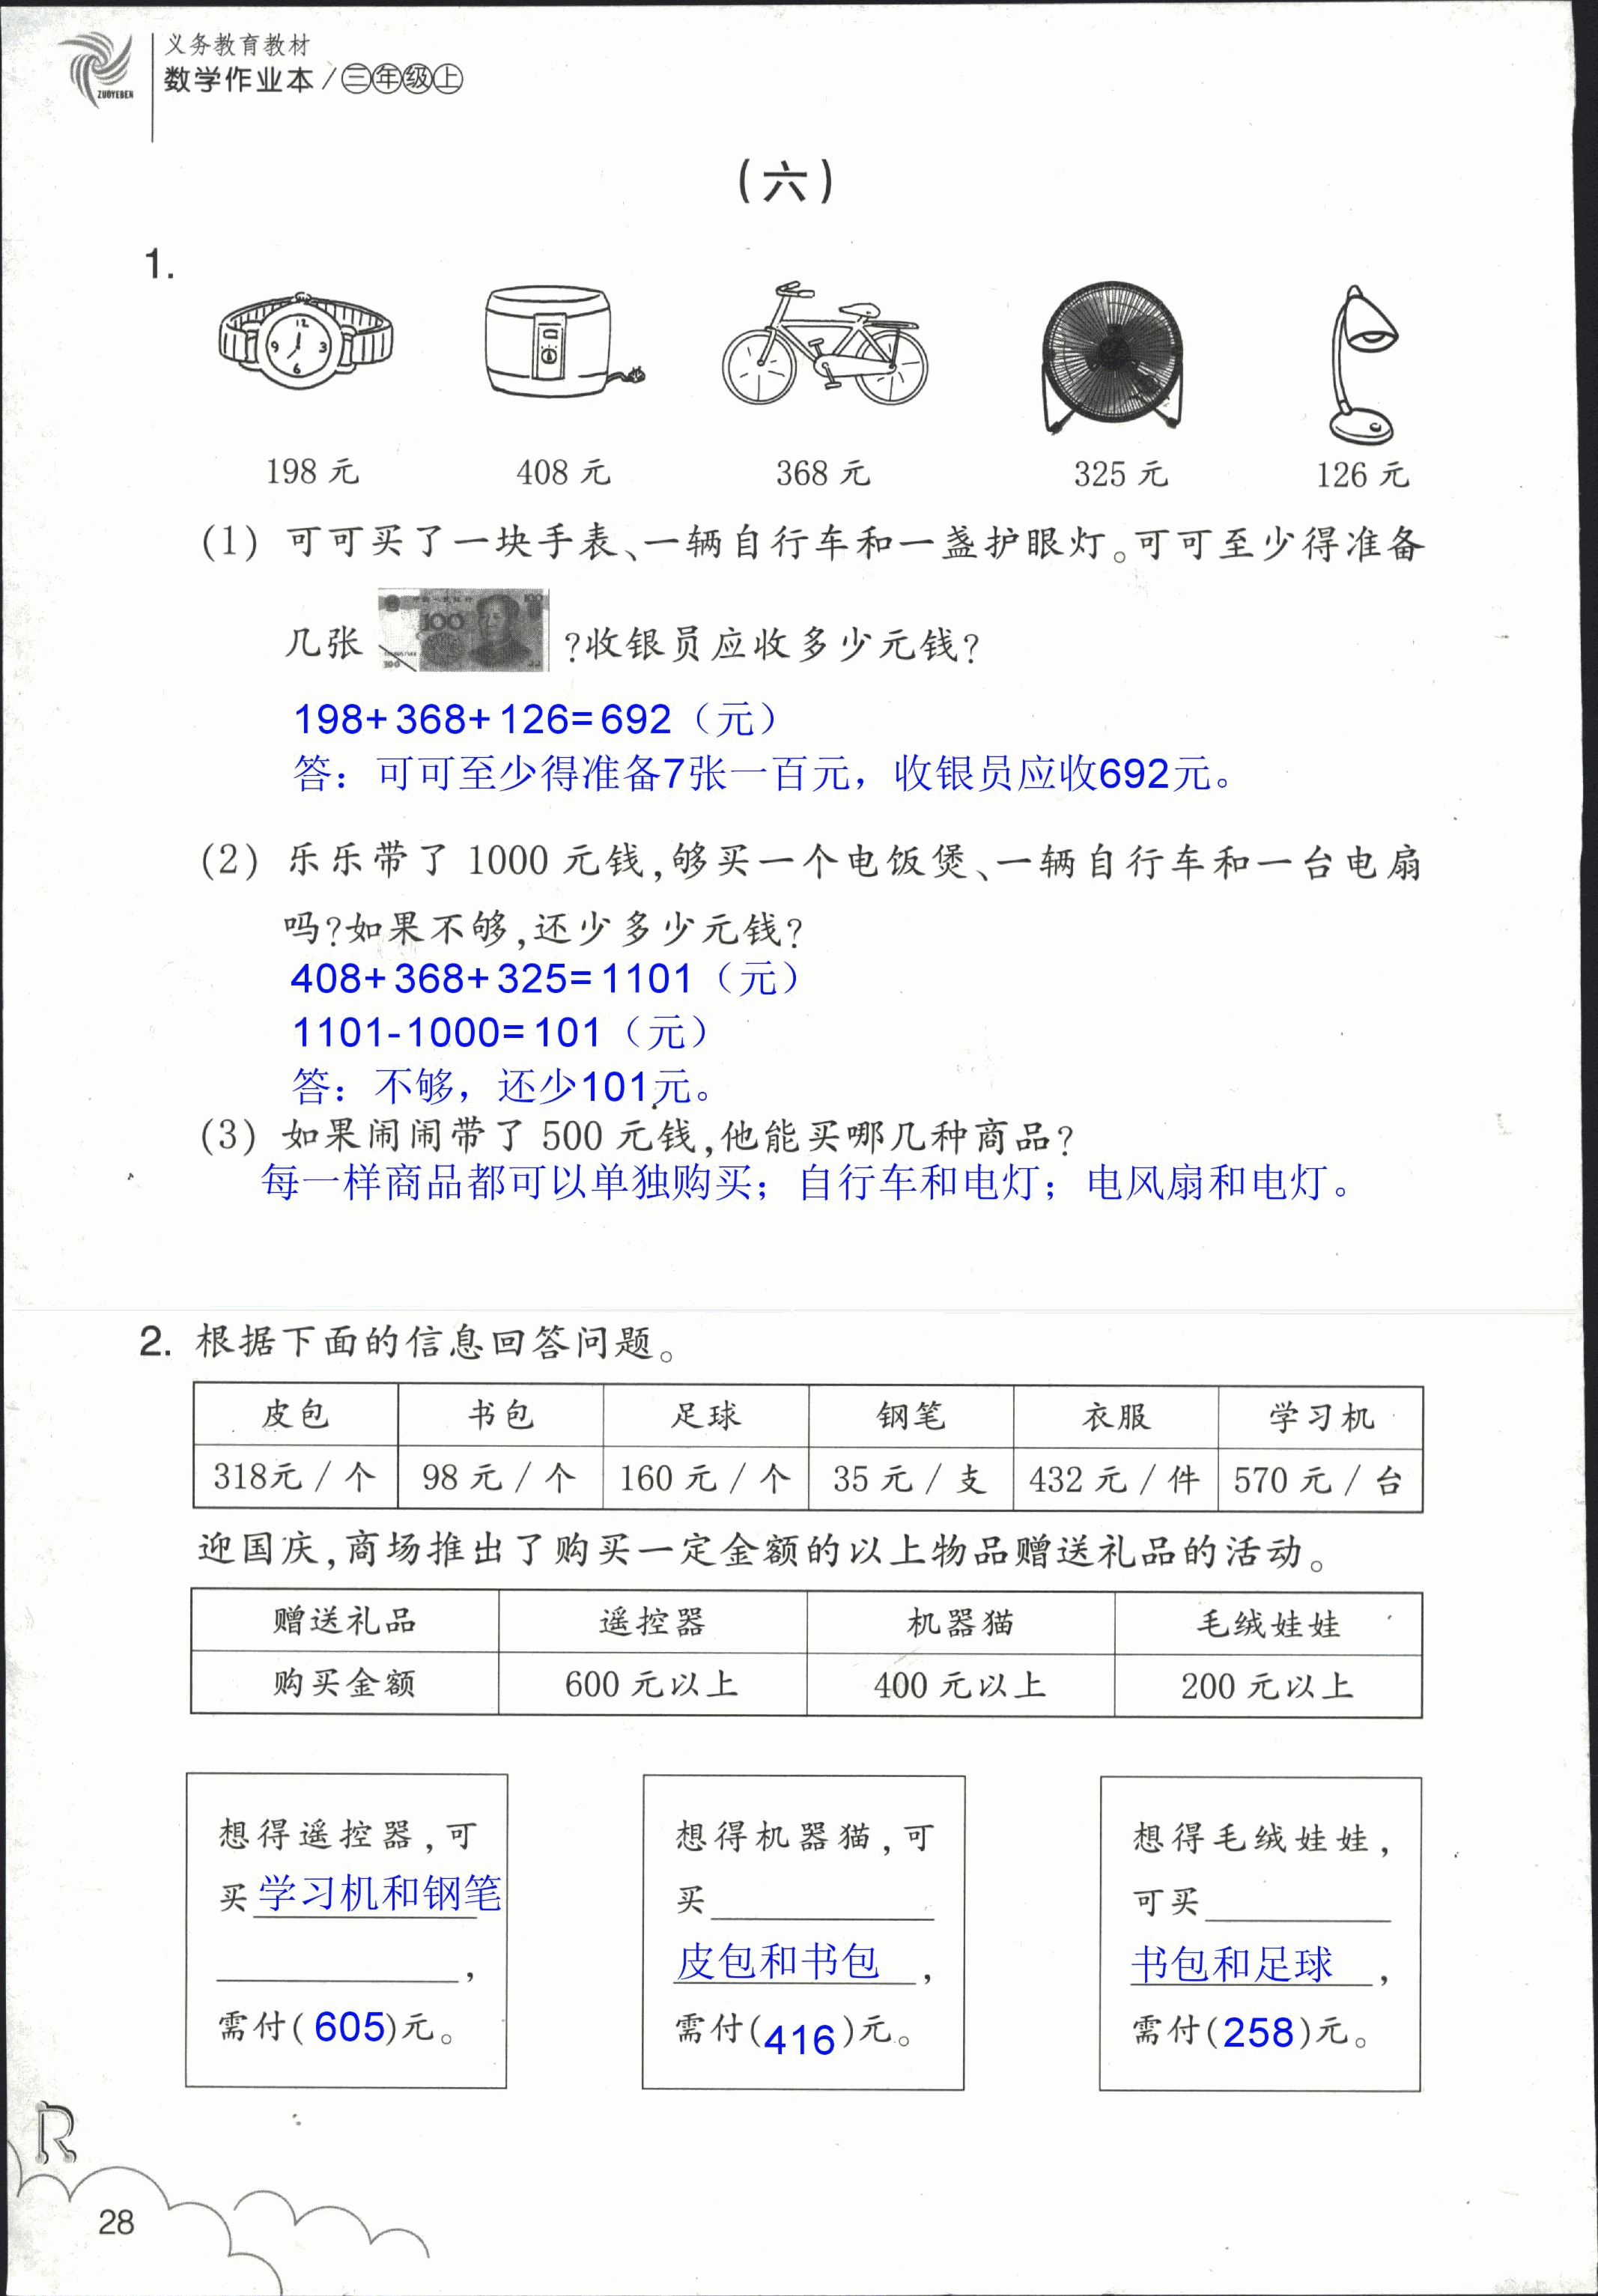 义务教育教材
数学作业本/三年级上
ZUOYEBEN
(六)
1.
12
9 3
6
198元 408元 368元 325元 126元
(1) 可可买了一块手表、一辆自行车和一盏护眼灯。可可至少得准备
几张 100 ?收银员应收多少元钱?
198+368+126=692（元）
答：可可至少得准备7张一百元，收银员应收692元。
(2) 乐乐带了1000元钱,够买一个电饭煲、一辆自行车和一台电扇
吗?如果不够,还少多少元钱?
408+368+325=1101（元）
1101-1000=101（元）
答：不够，还少101元。
(3) 如果闹闹带了500元钱,他能买哪几种商品?
每一样商品都可以单独购买；自行车和电灯；电风扇和电灯。
2. 根据下面的信息回答问题。
皮包 书包 足球 钢笔 衣服 学习机
318元/个 98元/个 160元/个 35元/支 432元/件 570元/台
迎国庆,商场推出了购买一定金额的以上物品赠送礼品的活动。
赠送礼品 遥控器 机器猫 毛绒娃娃
购买金额 600元以上 400元以上 200元以上
想得遥控器,可
买学习机和钢笔
,
需付(605)元。
想得机器猫,可
买
皮包和书包,
需付(416)元。
想得毛绒娃娃,
可买
书包和足球,
需付(258)元。
R
28